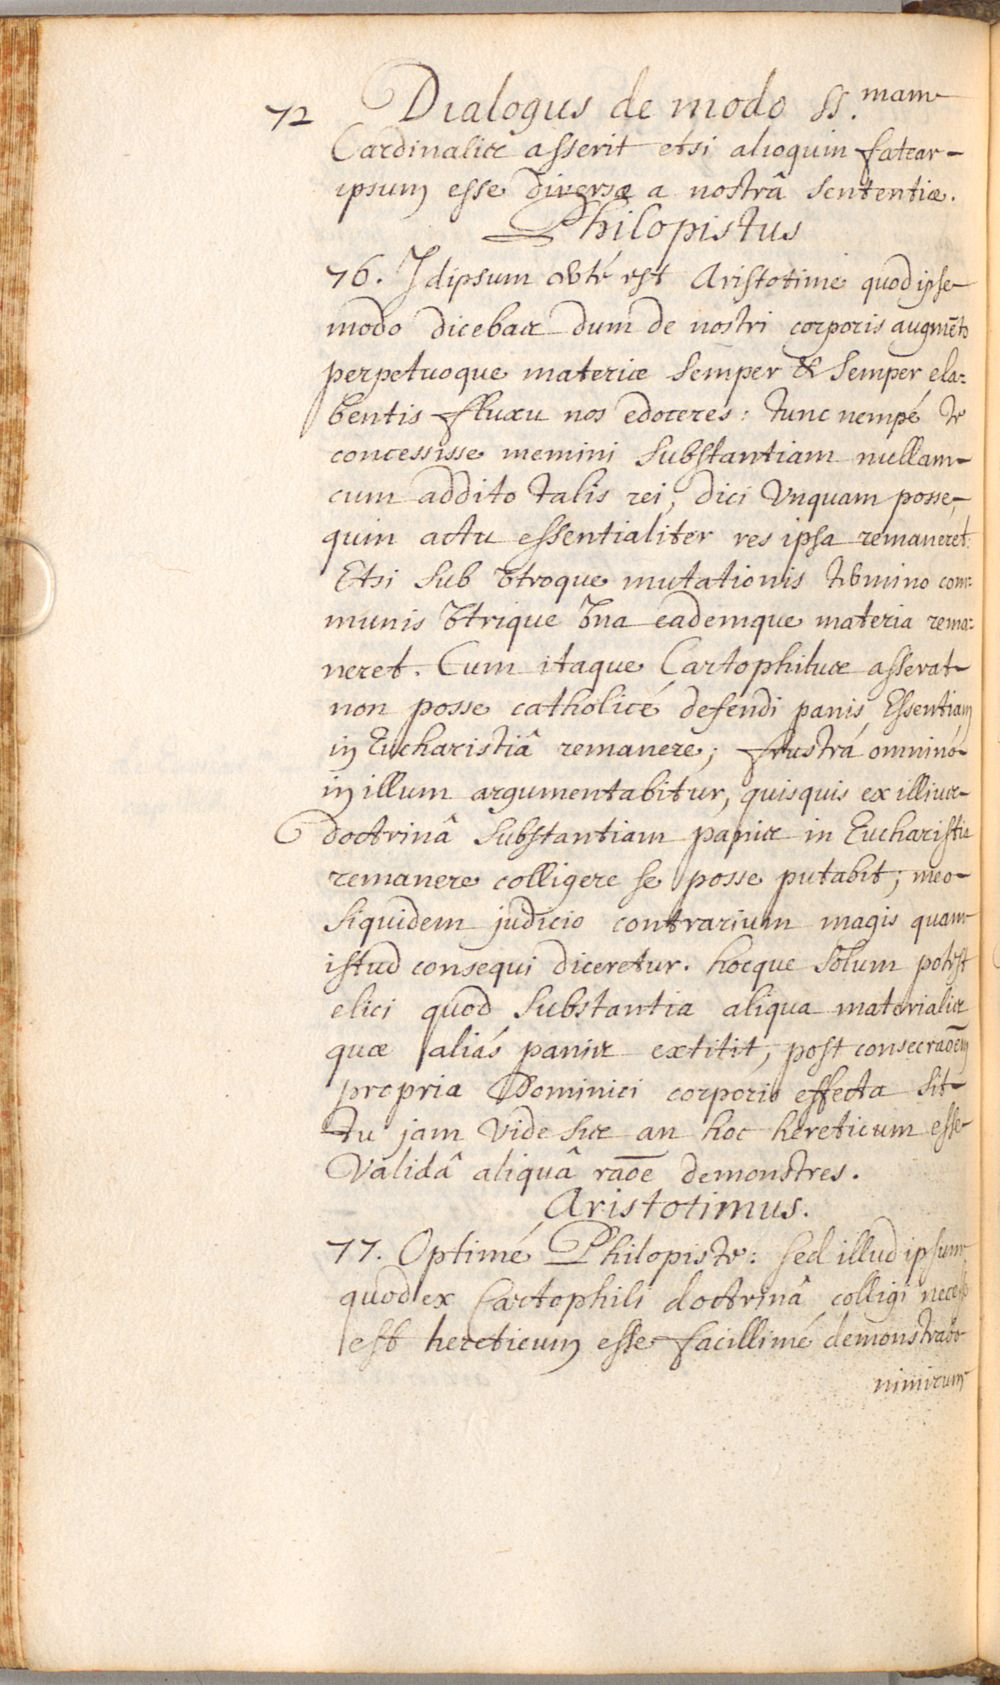 72 Dialogus de modo SS.mam
Cardinalis asserit etsi alioquin fatear
ipsum esse diversæ a nostrâ sententiæ.
Philopistus
76. Idipsum certé est Aristotime quod ipse
modo dicebas dum de nostri corporis augmēto
perpetuoque materiæ semper & semper ela=
bentis fluxu nos edoceres: tunc nempé te
concessisse memini substantiam nullam
cum addito talis rei, dici Unquam posse,
quin actu essentialiter res ipsa remaneret.
Etsi sub utroque mutationis termino com=
munis utrique una eademque materia rema=
neret. Cum itaque Cartophilus asserat
non posse catholicé defendi panis Essentiam
in Eucharistiâ remanere; frustrá omninó
in illum argumentabitur, quisquis ex illius
doctrinâ substantiam panis in Eucharistia
remanere colligere se posse putabit; meo
siquidem judicio contrarium magis quam
istud consequi diceretur. hocque solum potest
elici quod substantia aliqua materialis
quæ aliás panis extitit, post consecraōem
propria Dominici corporis effecta sit
tu jam vide sis an hoc hereticum esse
Validâ aliquâ raōe demonstres.
Aristotimus.
77. Optimé Philopiste: sed illud ipsum
quod ex Cartophili doctrinâ colligi necesse
est hereticum esse facillimé demonstrabo
nimirum